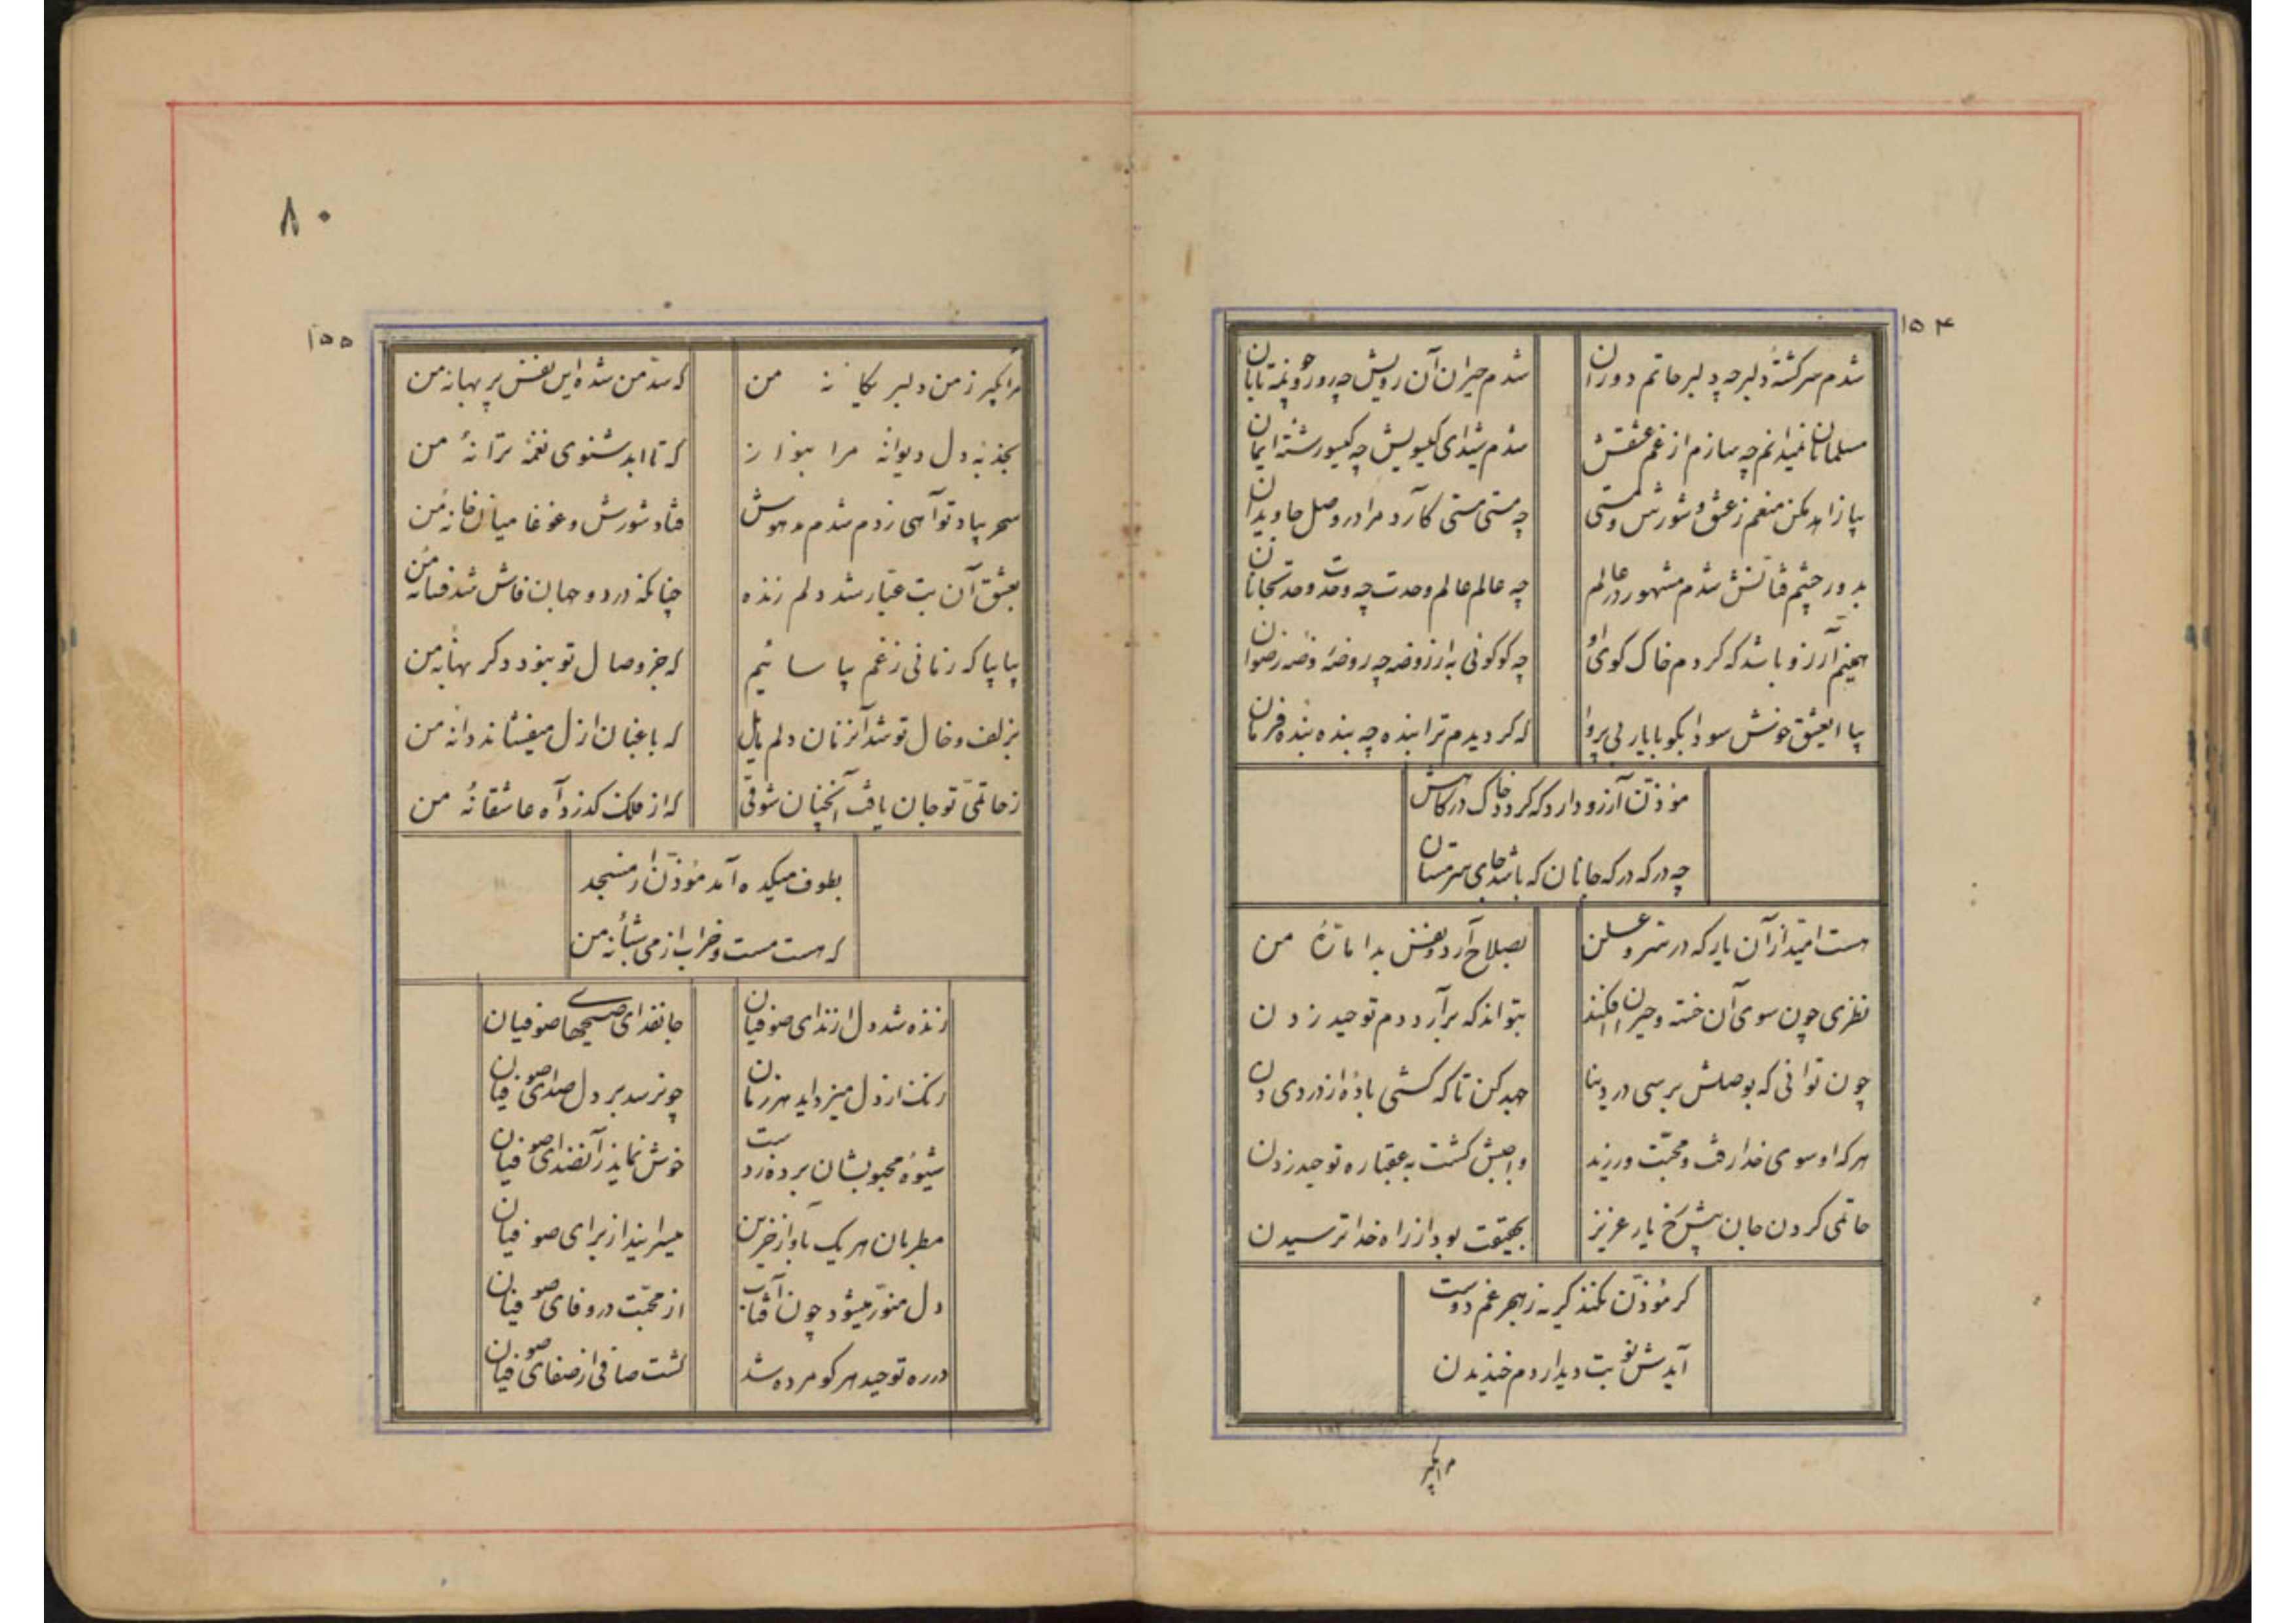 ۱۵۴
شدم سرگشتهٔ دلبر چه دلبر حاتم دوران
شدم حیران آن رویش چه رو
مسلمانان نمیدانم چه سازم از غم عشقش
شدم شیدای گیسویش چه گیسو رشتهٔ ایمان
بیا زاهد مکن منعم ز عشق و شورش و مستی
چه مستی مستی کآرد مرا در وصل جاویدان
بدور چشم فتانش شدم مشهور در عالم
چه عالم عالم وحدت چه وحدت وحدت
همینم آرزو باشد که گردم خاک کوی او
چه کو کوئی به از روضه چه روضه روضهٔ رضوان
بیا ای عشق خوش سودا بگو با یار بی پروا
که گردیدم ترا بنده چه بنده بندهٔ فرمان
مؤذن آرزو دارد که گردد خاک درگاهش
چه درگه درگه جانان که باشد جای سرمستان
هست امید از آن یار که در سر و علن
بصلاح آرد و نفس بد امارهٔ من
نظری چون سوی آن خسته و حیران افکند
بتواند که برآرد دم توحید زدن
چون توانی که بوصلش برسی در دنیا
جهد کن تا که کشی بادهٔ از دردی دن
هر که او سوی خدا رفت و محبت ورزند
واجبش گشت به عقبا ره توحید زدن
حاتمی کردن جان پیش رخ یار عزیز
بحقیقت بود از راه خدا ترسیدن
گر مؤذن نکند گریه ز هجر غم دوست
آیدش نوبت دیدار دم خندیدن
مرا مگیر
۸۰
۱۵۵
مرا مگیر ز من دلبر یگانه من
که سد من شده این نفس پر بهانه من
بجذبه دل دیوانه مرا بنواز
که تا ابد شنوی نغمه ترانهٔ من
سحر بیاد تو آهی زدم شدم مدهوش
فتاد شورش و غوغا میان خانه من
بعشق آن بت عیار شد دلم زنده
چنانکه در دو جهان فاش شد فسانه من
بیا بیا که زمانی ز غم بیاسائیم
که جز وصال تو نبود دگر بهانه من
بزلف و خال تو شد آنزمان دلم مایل
که باغبان ازل میفشاند دانه من
ز حاتمی تو جان یافت آنچنان شوقی
که از فلک گذرد آه عاشقانهٔ من
بطوف میکده آمد مؤذن از مسجد
که هست مست و خراب از می شبانه من
زنده شد دل از ندای صوفیان
جانفدای صبحهای صوفیان
زنگ از دل میزداید هر زمان
چونرسد بر دل صدای صوفیان
شیوهٔ محبوبشان برده ز دست
خوش نماید
مطربان هر یک بآواز حزین
میسرایند از برای صوفیان
دل منور میشود چون آفتاب
از محبت در وفای صوفیان
در ره توحید هر کو مرده شد
گشت صافی از صفای صوفیان